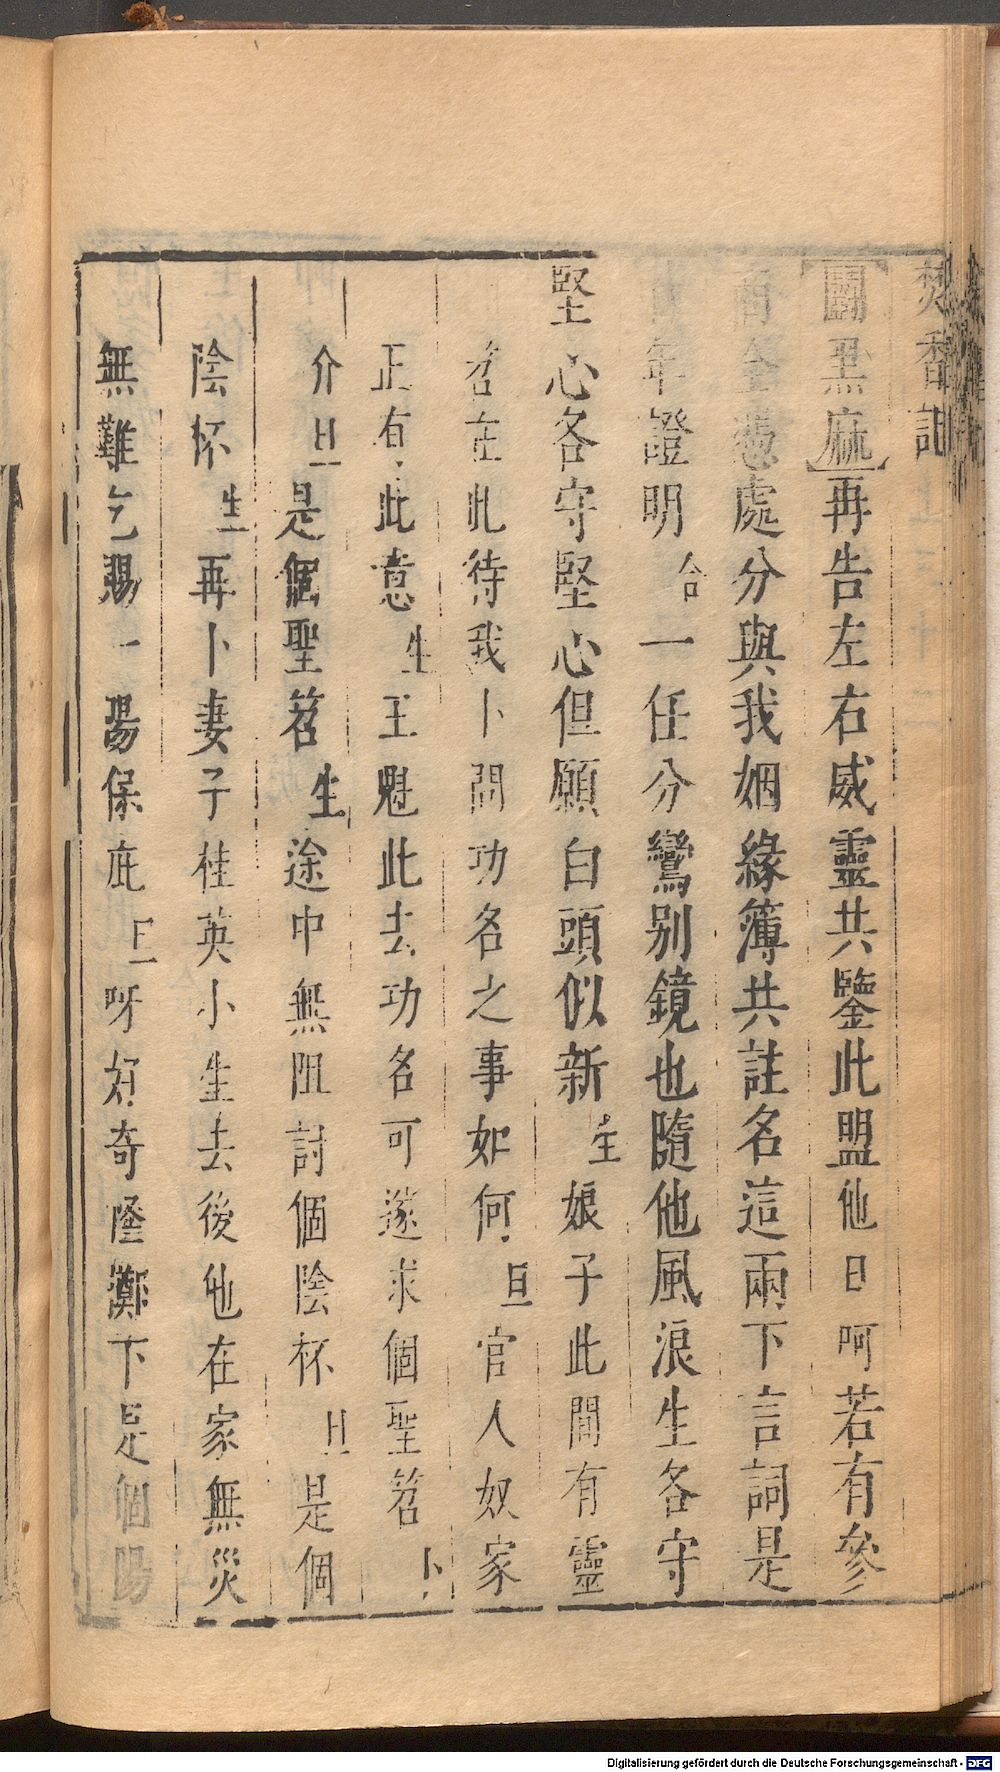 焚香記
鬪黑麻再告左右威靈共鑒此盟他日呵若有參
商全憑處分與我姻緣簿共註名這兩下言詞是
年證明合一任分鸞别鏡也隨他風浪生各守
堅心各守堅心但願白頭似新生娘子此間有靈
筶在此待我卜問功名之事如何旦官人奴家
正有此意生王魁此去功名可遂求個聖筶卜
介旦是個聖筶生途中無阻討個陰杯旦是個
陰杯生再卜妻子桂英小生去後他在家無災
無難乞賜一陽保庇旦呀好奇隂擲下是個陽
Digitalisierung gefördert durch die Deutsche Forschungsgemeinschaft - DFG